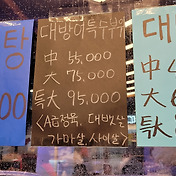 대방어특수부위
中 55,000
大 75,000
특大 95,000
<A급정육, 대뱃살
가마살, 사이살>
탕
00
대방
中
大
특大